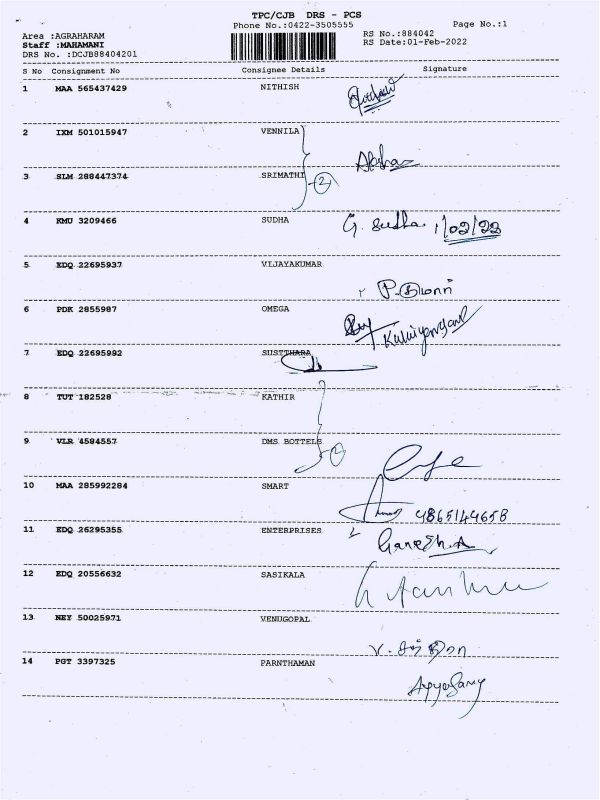 TPC/CJB DRS - PCS
Phone No.:0422-3505555
Page No.:1
Area :AGRAHARAM
RS No.:884042
Staff :MAHAMANI
RS Date:01-Feb-2022
DRS No. :DCJB88404201
S No Consignment No Consignee Details Signature
1 MAA 565437429 NITHISH
2 IXM 501015947 VENNILA
3 SLM 288447374 SRIMATHI 2
4 KMU 3209466 SUDHA G. Sudha 1/02/22
5 EDQ 22695937 VIJAYAKUMAR
6 PDK 2855987 OMEGA
7 EDQ 22695992 SUSTTHARA
8 TUT 182528 KATHIR
9 VLR 4584557 DMS BOTTELS
10 MAA 285992284 SMART
4865144658
11 EDQ 26295355 ENTERPRISES Ganesh.A
12 EDQ 20556632 SASIKALA
13 NEY 50025971 VENUGOPAL
14 PGT 3397325 PARNTHAMAN